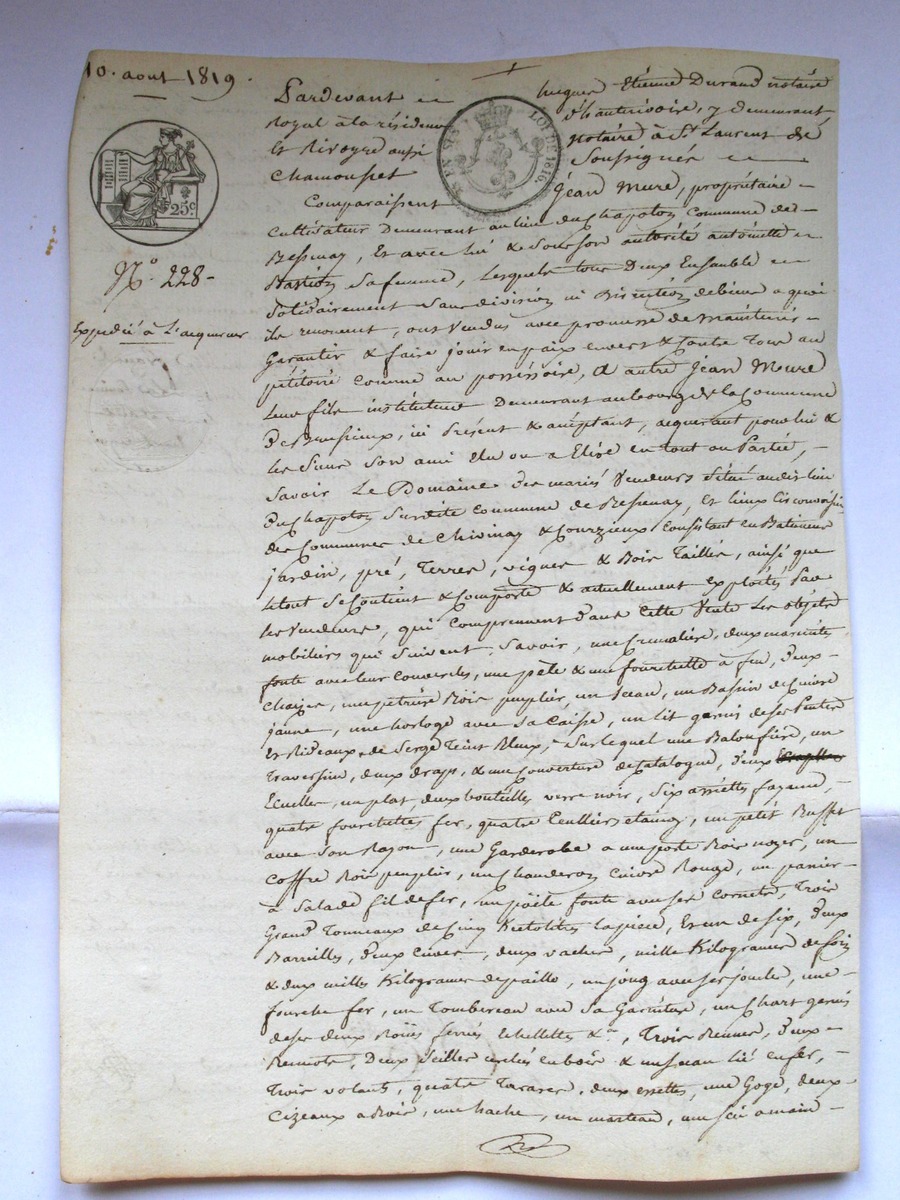 10. aout 1819.
25c
N.o 228-
Expedié à l'acquereur
LOI DE 1816.
Pardevant hugues Etienne Durand notaire
Royal à la résidence d'hauterivoire, y demeurant
Et Rivoyre aussi notaire à St Laurent de
Chamousset Soussignés
Comparaissent Jean Mure, propriétaire -
Cultivateur Demeurant au lieu du Chapoton Commune de -
Bessenay, Et avec lui & de son autorité
Bastion sa femme, lesquels tous deux Ensemble
Solidairement Sans division ni Discution de biens a quoi
ils renoncent, ont Vendus avec promesse de maintenir -
Garantir & faire jouir en paix envers & Contre Tous au
pétitoire comme au possessoire, A autre Jean Mure
Leur fils instituteur Demeurant au bourg de la Commune
De , ici Présent & acceptant, acquerant pour lui &
les Siens Son ami élu ou a Elire en tout ou Partie, -
Savoir Le Domaine Des mariés Vendeurs situé audit lieu
Du Chapoton Susdite Commune de Bessenay, Et lieux Circonvoisins
des Communes de Chivinay & Courzieux Consistant en Batiments
jardin, pré, Terres, vignes & Bois Taillis, ainsi que
le tout Se Contient & Comporte & actuellement Exploités Par
les Vendeurs, qui Comprennent Dans Cette Vente Les objets
mobiliers qui Suivent, Savoir, une Cremalière, deux marmites
fonte avec leur Couvercles, une pèle & une fourchette à feu, Deux -
Chaizes, une petrière Bois peuplier, un Seau, un Bassin de Cuivre
jaune, une horloge avec Sa Caisse, un lit garni de ses
Et Rideaux de Serge Teint Bleux, Sur lequel une Balouffière, un
Traversin, deux draps, & une Couverture de Catalogne, Deux
Ecuelles, un plat, deux bouteilles verre noir, Six assiettes fayance, -
quatre fourchettes fer, quatre Ceuilliers étaing, un petit Buffet
avec Son Rayon, une Garderobe a une porte Bois noyer, un
Coffre Bois peuplier, un Chauderon Cuivre Rouge, un panier -
à Salade fil de fer, un poële fonte avec ses Cornets, Trois
Grand Tonneaux de Cinq Hectolitres la pièce, Et un de Six, Deux
Barrilles, Deux Cuves, deux vaches, mille Kilogrames de foin
& deux milles Kilogrames de paille, un joug avec ses joucles, une -
fourche fer, un Tombereau avec Sa Garniture, un Chart garni
de ses deux Roües ferrées Echellettes &a, Trois Bennes, Deux -
Bennots, Deux Seilles cerclés en bois & un seau lié en fer, -
Trois volants, quatre Tarares, deux essettes, une Goge, deux -
Cizeaux a Bois, une hache, un marteau, une Scie a main -